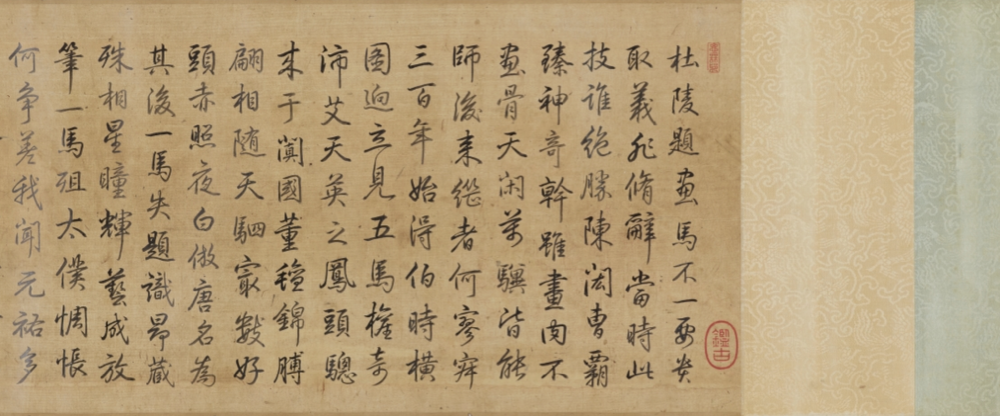 杜陵題畫馬不一要貴
取義非脩辭當時此
技誰絶勝陳閎曹霸
臻神奇幹雖畫肉不
畫骨天閑萬驥皆能
師後來繼者何寥寂
三百年始得伯時橫
圖迥立見五馬權奇
沛艾天英之鳳頭驄
来于闐國董氊錦膊
翩相随天駟最數好
頭赤照夜白倣唐名為
其後一馬失題識昂藏
殊相星瞳輝藝成放
筆一馬殂太僕惆悵
何争差我聞元祐多
鑑古